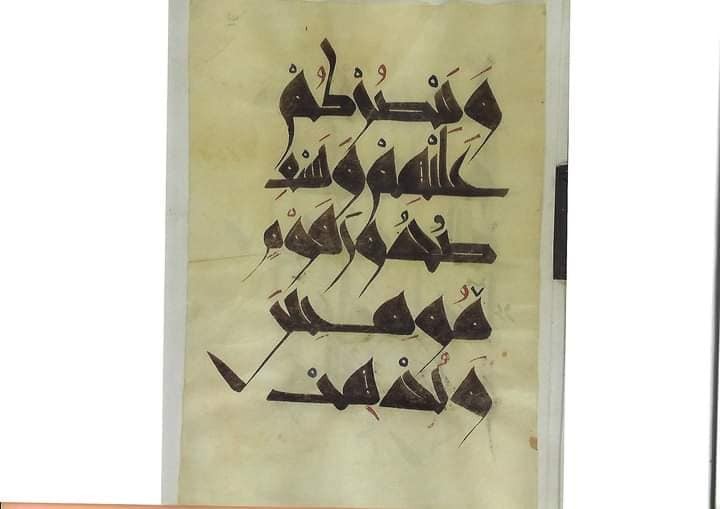 وَيَنْصُرْكُمْ
عَلَيْهِمْ وَيَشْفِ
صُدُورَ قَوْمٍ
مُؤْمِنِينَ
وَيُذْهِبْ